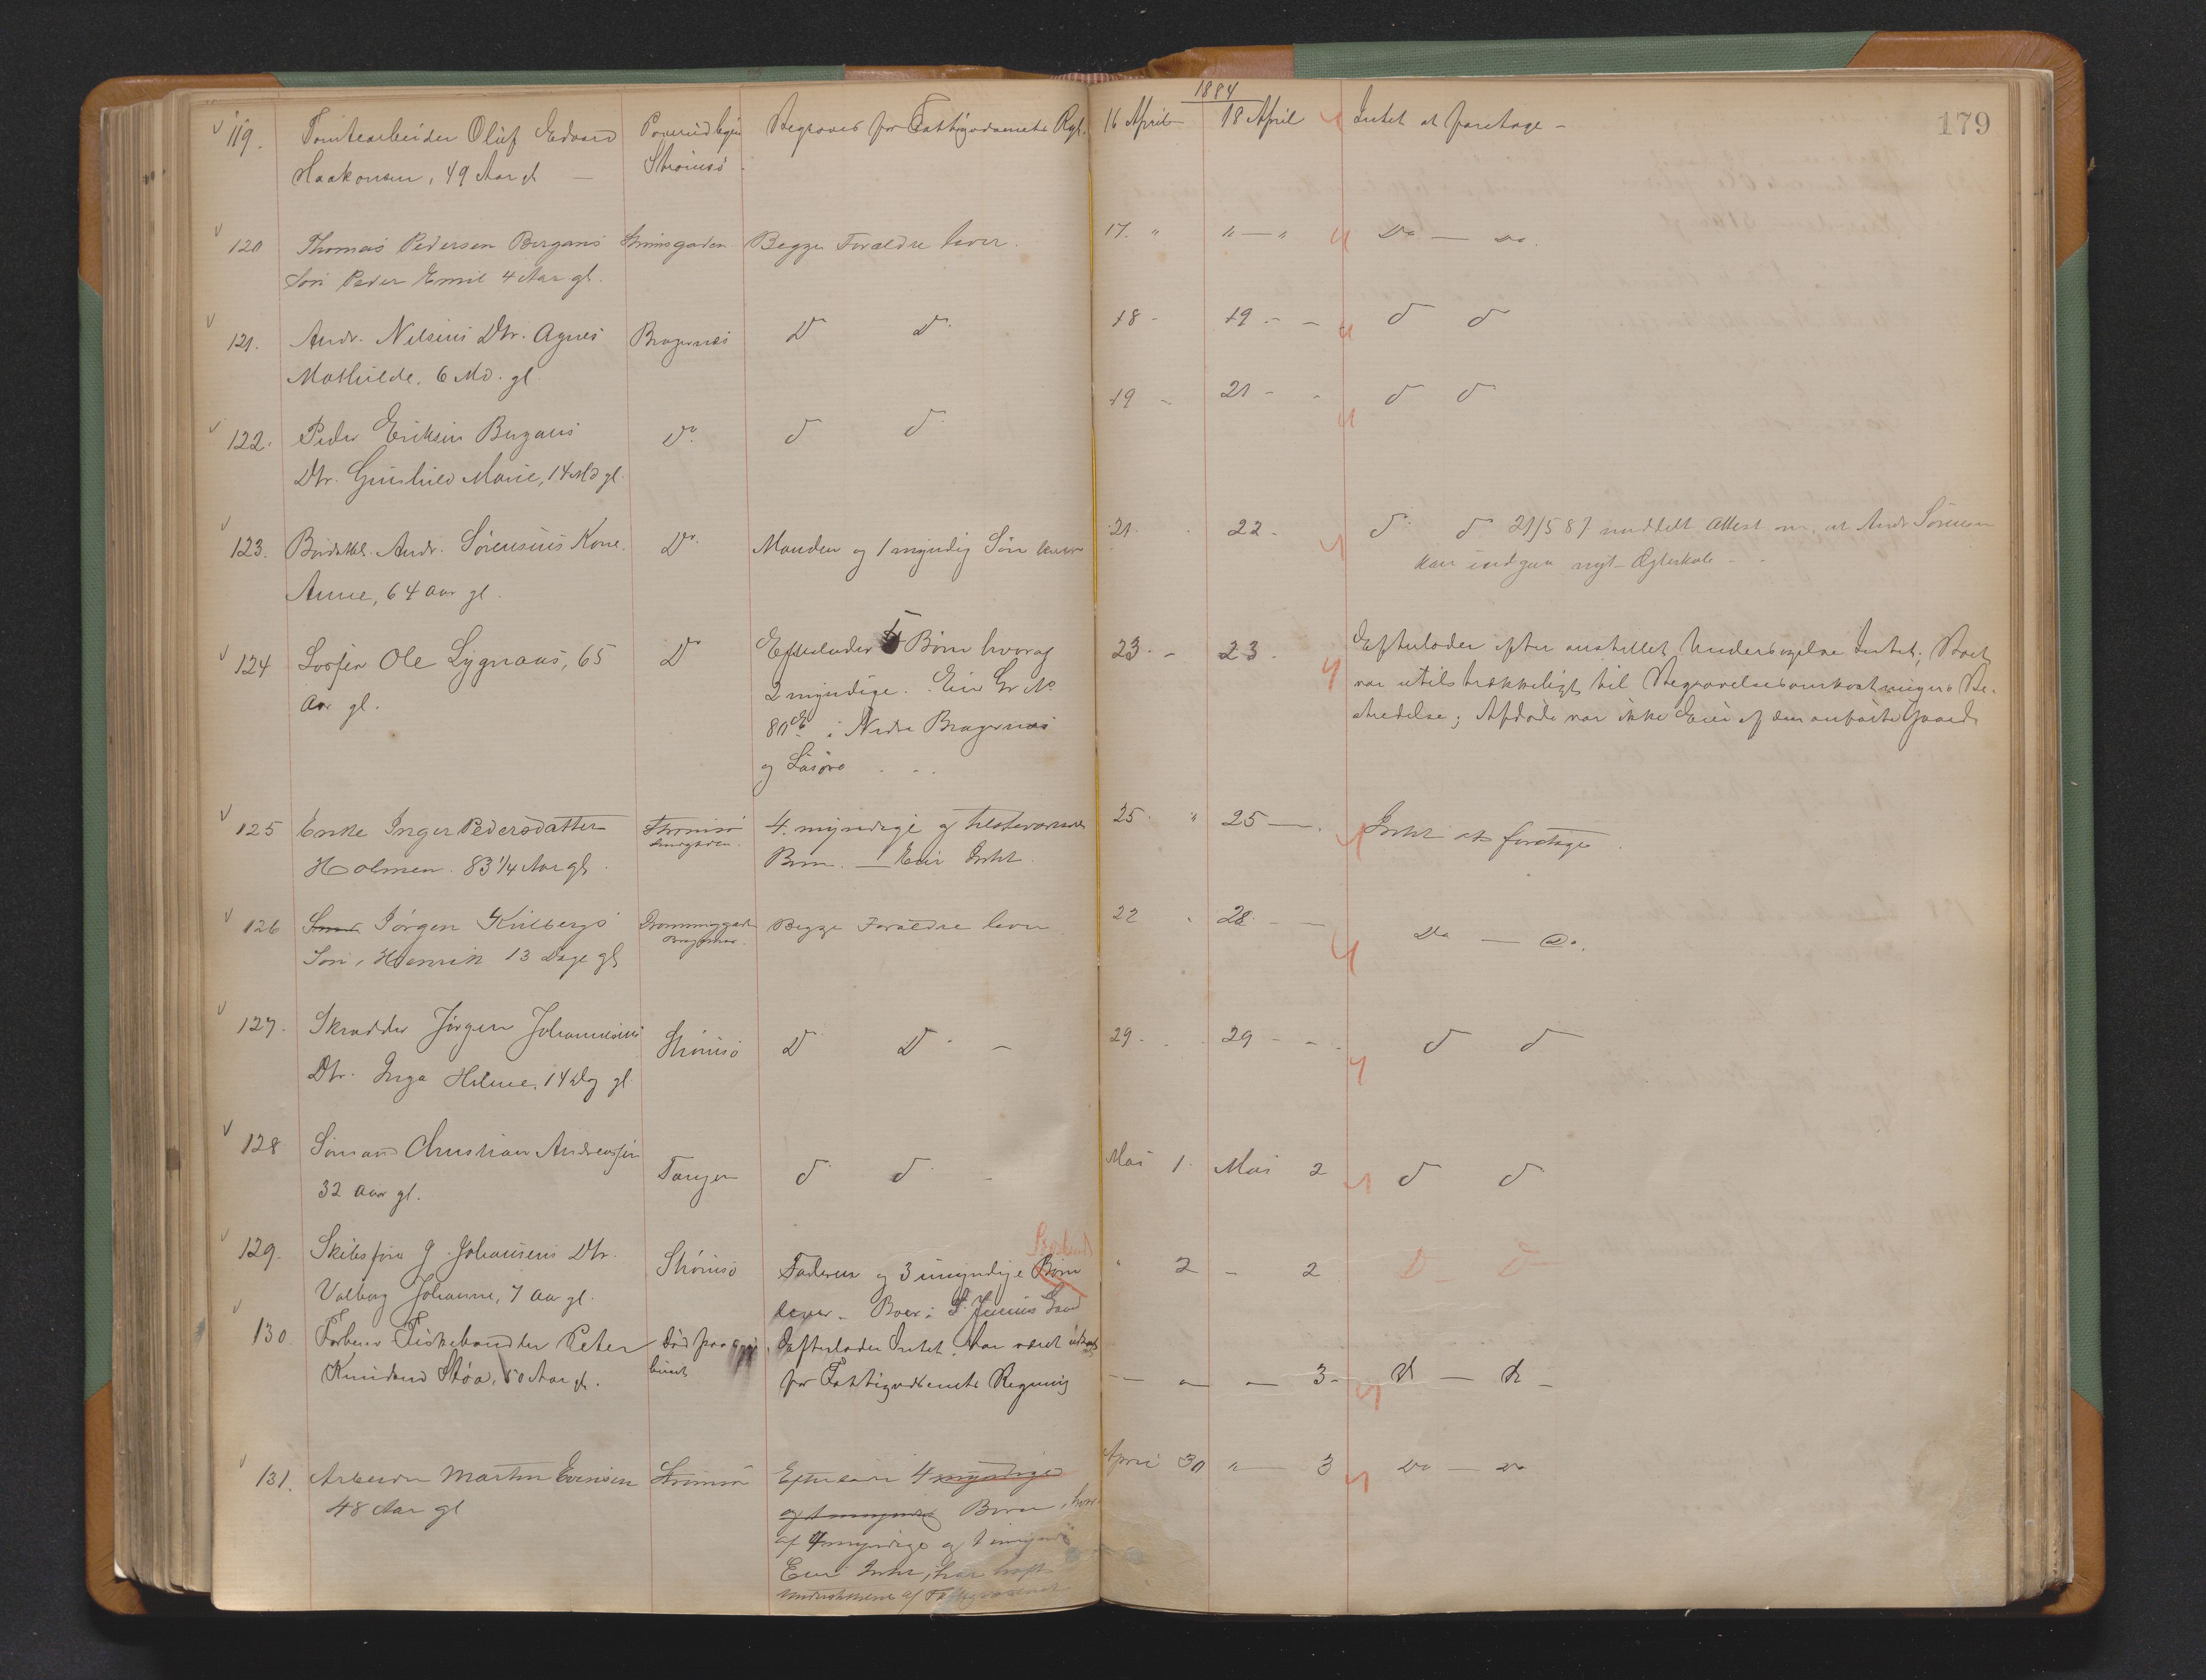 1884
179
119. Tomtearbeider Oluf Edvard
Haakonsen, 49 Aar gl.
Strømsø
Begraves for Fattigvæsenets Rg.
16 April 18 April Intet at foretage -
120 Thomas Pedersen Bergans
Søn Peder Emil 4 Aar gl.
Begge Forældre lever.
17. " " — " Do — Do.
121. Andr. Nelsens Dtr. Agnes
Mathilde, 6 Md. gl.
Bragernæs
Do Do.
18 - 19 - - do do
122. Peder Eriksen Bergans
Dtr. Gunhild Marie, 14 Md gl.
Do.
do do.
19 - 21 - - do do
123. Andr. Sørensens Kone
Anne, 64 aar gl.
Do.
Manden og 1 myndig Søn lever
21. 22 - do do 21/5 87 meddelt Attest om, at Andr Sørensen
kan indgaa nyt Ægteskab -
124 Losfer Ole Lygnaas, 65
Aar gl.
Do
Efterlader 5 Børn hvoraf
2 myndige. Eier Gr No
80 b i Nedre Bragernæs
og Løsøre
23. - 23 - Efterlader efter anstillet Undersøgelse Intet; Boet
var utilstrækkeligt til Begravelsesomkostningers Be-
stridelse; Afdøde var ikke Eier af den anførte Gaard
125 Enke Inger Pedersdatter
Holmen. 83 1/4 Aar gl.
Strømsø
4 myndige og tilstedeværende
Børn. — Eier Intet
25. " 25 — Intet at foretage.
126 Jørgen Kilbergs
Søn, Henrik 13 Dage gl
Bragernæs.
Begge Forældre lever
22 28. - - Do — Do.
127. Skrædder Jørgen Johannesens
Dtr. Inga Helene, 14 Dg gl.
Strømsø
Do Do. -
29. 29 - - do do
128 Sømand Christian Andreassen
32 aar gl.
Tangen
do. do. -
Mai 1. Mai 2 do do
129. Skibsfører J. Johansens Dtr.
Valborg Johanne, 7 aar gl.
Strømsø
Faderen og 3 umyndige Børn
lever - Boer i Gaard
" 2 - 2 D D
130. Forhenv Fiskehandler Peter
Knudsen Støa, 50 Aar gl.
Død paa
Efterlader Intet. Har været
for Fattigvæsenets Regning
— — — 3 - D — D -
131. Arbeider Martin Evensen
48 Aar gl
Strømsø
Efterlader 4 myndige
og 1 umyndig Børn, hvor-
af 4 myndige og 1 umyndig
Eier Intet, har havt
Understøttelse af Fattigvæsenet
April 30 " — 3 Do — Do